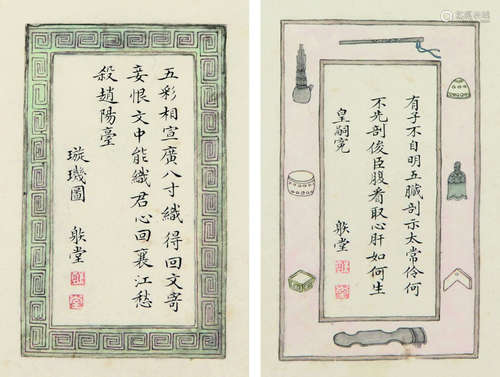 五彩相宣廣八寸織得回文寄
妾恨文中能織君心回襄江愁
殺趙陽臺
璇璣圖
躲堂
有子不自明五臟剖示太常伶何
不先剖俊臣腹看取心肝如何生
皇嗣冤
躲堂